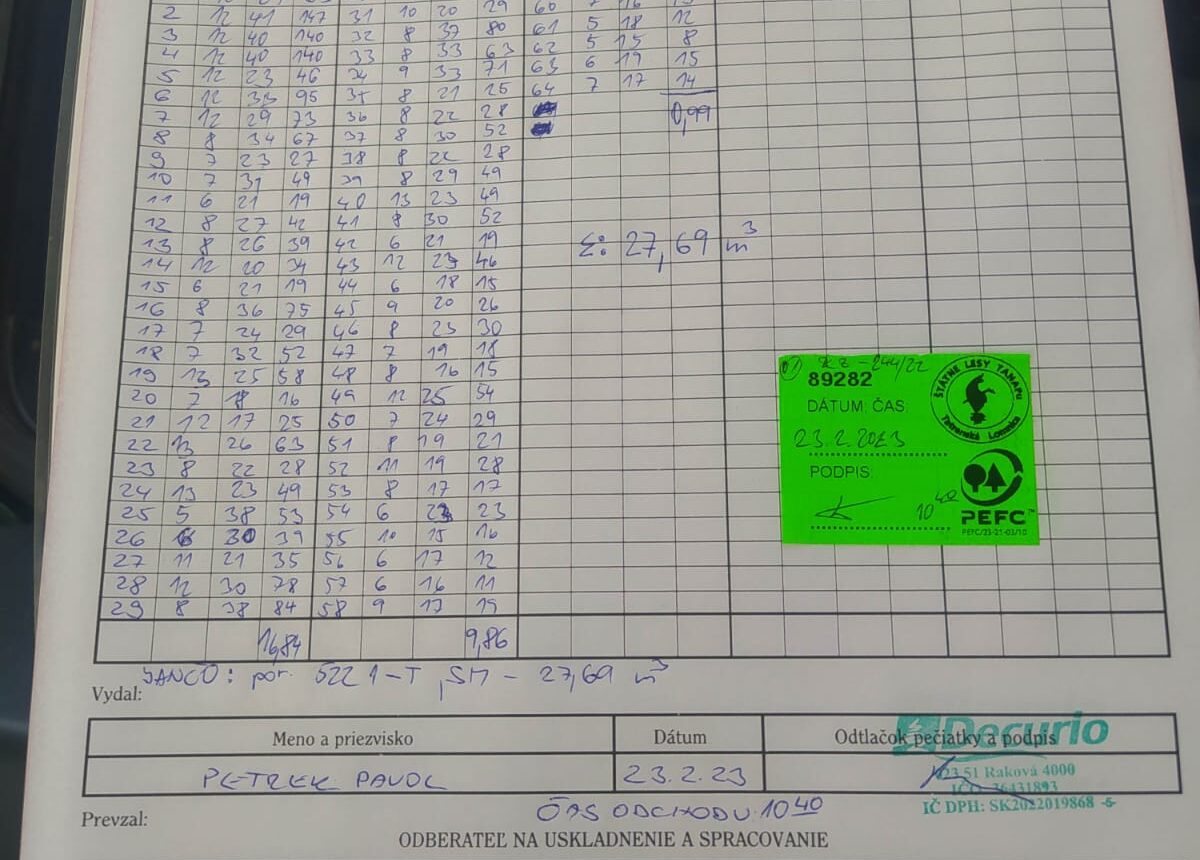 2 12 41 147 31 10 20 29 60 7 16
3 12 40 140 32 8 37 80 61 5 18 12
4 12 40 140 33 8 33 63 62 5 15 8
5 12 23 46 34 9 33 71 63 6 19 15
6 12 33 95 35 8 21 25 64 7 17 14
7 12 29 73 36 8 22 28 0,99
8 8 34 67 37 8 30 52
9 7 23 27 38 8 22 28
10 7 31 49 39 8 29 49
11 6 21 19 40 13 23 49
12 8 27 42 41 8 30 52
13 8 26 39 42 6 21 19
Σ: 27,69 m³
14 12 20 34 43 12 23 46
15 6 21 19 44 6 18 15
16 8 36 75 45 9 20 26
17 7 24 29 46 8 23 30
18 7 32 52 47 7 19 18
19 13 25 58 48 8 16 15
20 7 18 16 49 12 25 54
21 12 17 25 50 7 24 29
22 13 26 63 51 8 19 21
23 8 22 28 52 11 19 28
24 13 23 49 53 8 17 17
25 5 38 53 54 6 23 23
26 6 30 39 55 10 15 16
27 11 21 35 56 6 17 12
28 12 30 78 57 6 16 11
29 8 38 84 58 9 17 19
16,84 9,86
244/22
89282
DÁTUM: ČAS:
23.2.2023
PODPIS:
10 40
ŠTÁTNE LESY TANAPU
Tatranská Lomnica
PEFC™
PEFC/23-21-03/10
JANČO: por. 522 1-T, SM - 27,69 m³
Vydal:
Meno a priezvisko Dátum Odtlačok pečiatky a podpis
PETREK PAVOL 23.2.23
Decurio
023 51 Raková 4000
IČO: 36431893
IČ DPH: SK2022019868 -5-
Prevzal:
ČAS ODCHODU 10 40
ODBERATEĽ NA USKLADNENIE A SPRACOVANIE